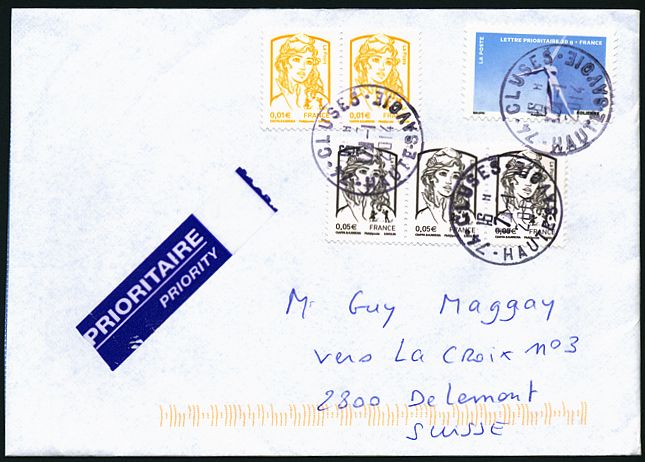 LA POSTE
LETTRE PRIORITAIRE 20 g - FRANCE
0,01€ FRANCE
0,01€ FRANCE
74-CLUSES
HAUTE-SAVOIE
16 H
2014
74-CLUSES
HAUTE-SAVOIE
16 H
2014
0,05€ FRANCE
0,05€ FRANCE
0,05€ FRANCE
74-CLUSES
HAUTE-SAVOIE
16 H
PRIORITAIRE
PRIORITY
Mr Guy Maggay
Vers La Croix n°3
2800 Delemont
SUISSE